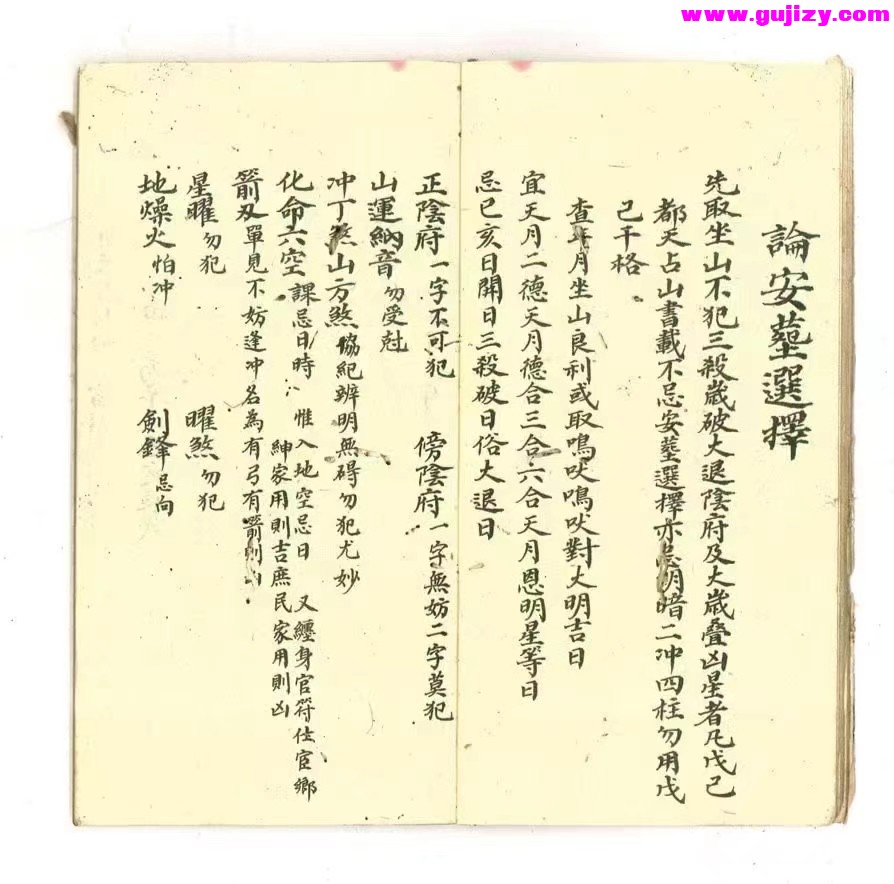 www.gujizy.com
論安塟選擇
先取坐山不犯三殺歲破大退陰府及大歲叠凶星者凢戊己
都天占山書載不忌安塟選擇亦忌明暗二冲四柱勿用戊
己干格
查年月坐山良利或取鳴吠鳴吠對大明吉日
宜天月二德天月德合三合六合天月恩明星等日
忌已亥日開日三殺破日俗大退日
正陰府一字不可犯 傍陰府一字無妨二字莫犯
山運納音勿受尅
冲丁煞山方煞 協紀辨明無碍勿犯尤妙
化命六空 課忌日時 惟入地空忌日 又纏身官符仕宦鄉
紳家用則吉庶民家用則凶
箭刃單見不妨逢冲名為有弓有箭則
星曜勿犯 曜煞勿犯
地燥火怕冲 劍鋒忌向